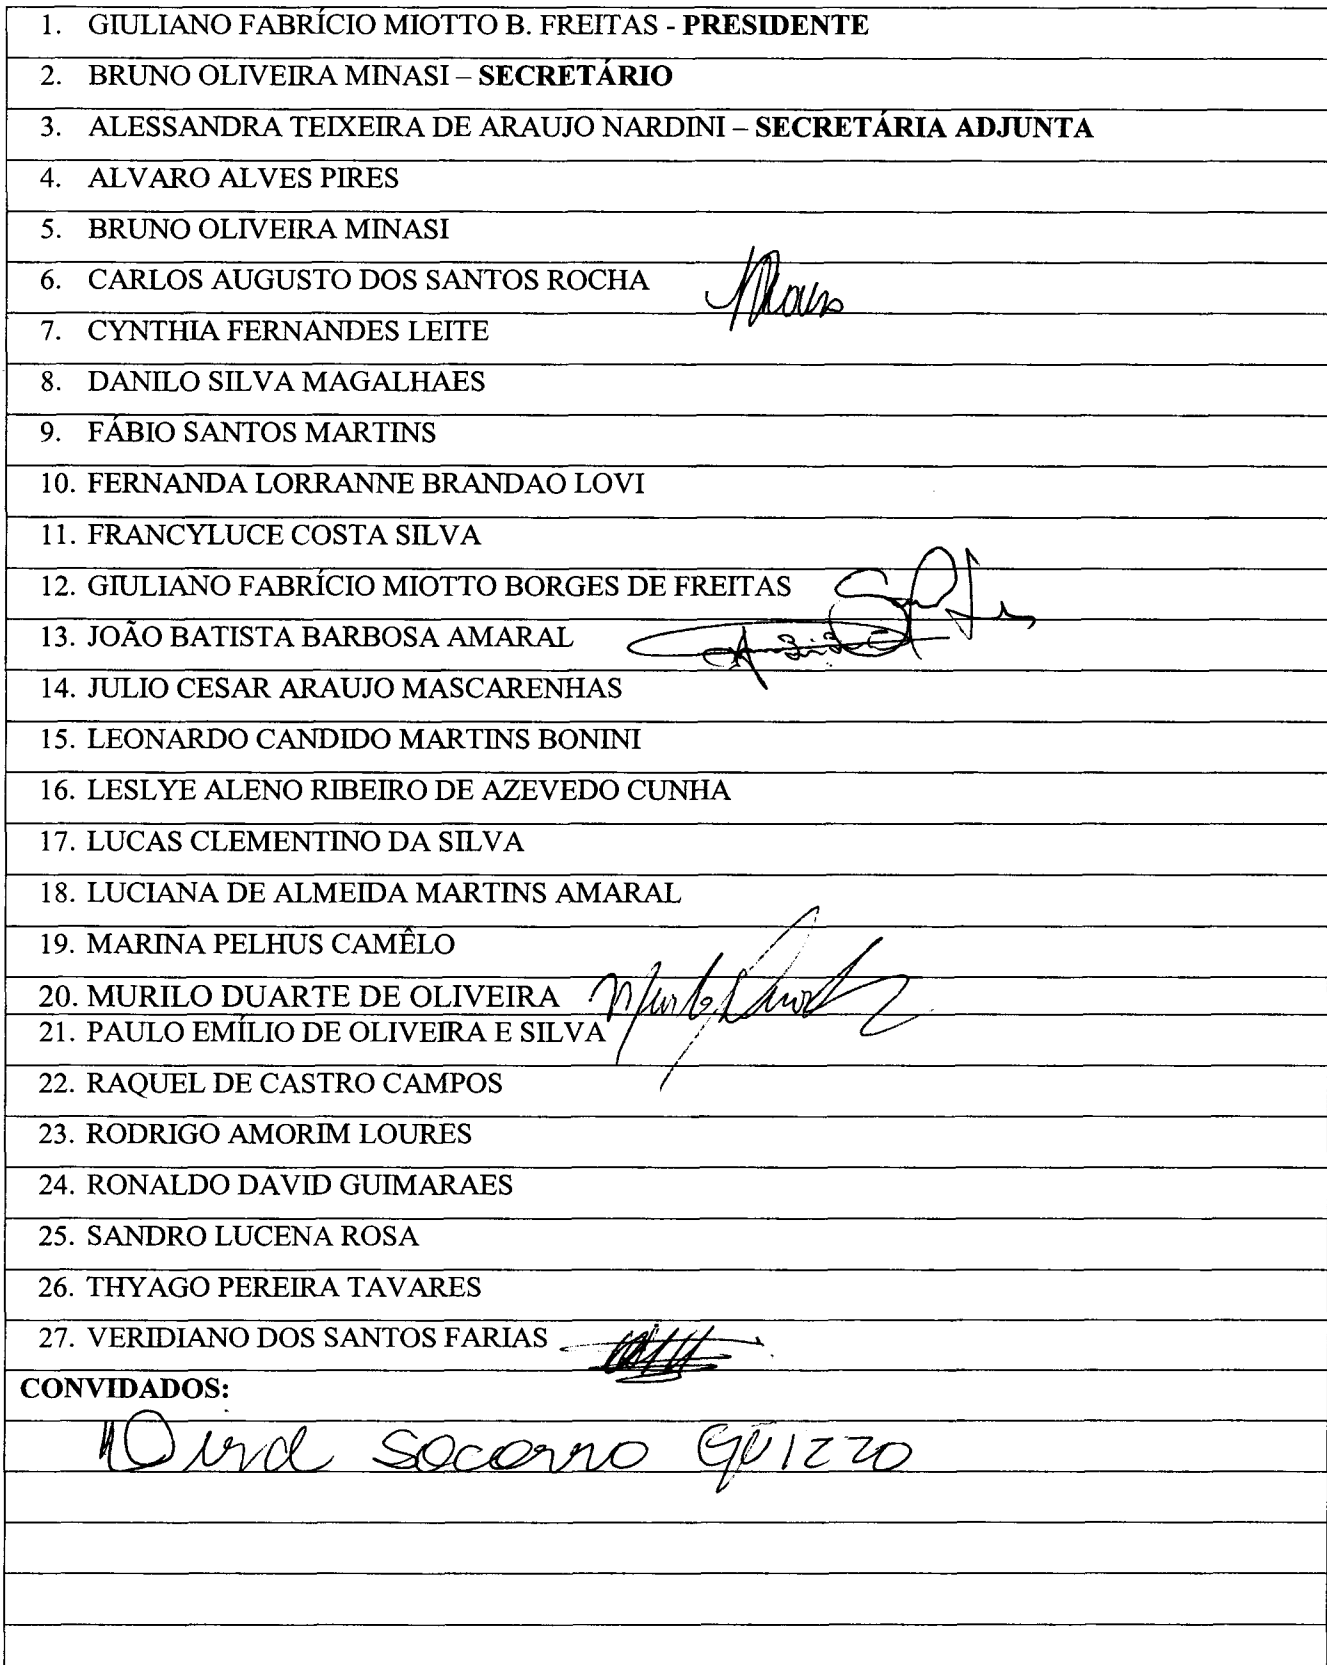 1. GIULIANO FABRÍCIO MIOTTO B. FREITAS - PRESIDENTE
2. BRUNO OLIVEIRA MINASI – SECRETÁRIO
3. ALESSANDRA TEIXEIRA DE ARAUJO NARDINI – SECRETÁRIA ADJUNTA
4. ALVARO ALVES PIRES
5. BRUNO OLIVEIRA MINASI
6. CARLOS AUGUSTO DOS SANTOS ROCHA
7. CYNTHIA FERNANDES LEITE
8. DANILO SILVA MAGALHAES
9. FÁBIO SANTOS MARTINS
10. FERNANDA LORRANNE BRANDAO LOVI
11. FRANCYLUCE COSTA SILVA
12. GIULIANO FABRÍCIO MIOTTO BORGES DE FREITAS
13. JOÃO BATISTA BARBOSA AMARAL
14. JULIO CESAR ARAUJO MASCARENHAS
15. LEONARDO CANDIDO MARTINS BONINI
16. LESLYE ALENO RIBEIRO DE AZEVEDO CUNHA
17. LUCAS CLEMENTINO DA SILVA
18. LUCIANA DE ALMEIDA MARTINS AMARAL
19. MARINA PELHUS CAMÊLO
20. MURILO DUARTE DE OLIVEIRA
21. PAULO EMÍLIO DE OLIVEIRA E SILVA
22. RAQUEL DE CASTRO CAMPOS
23. RODRIGO AMORIM LOURES
24. RONALDO DAVID GUIMARAES
25. SANDRO LUCENA ROSA
26. THYAGO PEREIRA TAVARES
27. VERIDIANO DOS SANTOS FARIAS
CONVIDADOS:
Socorro GUIZZO